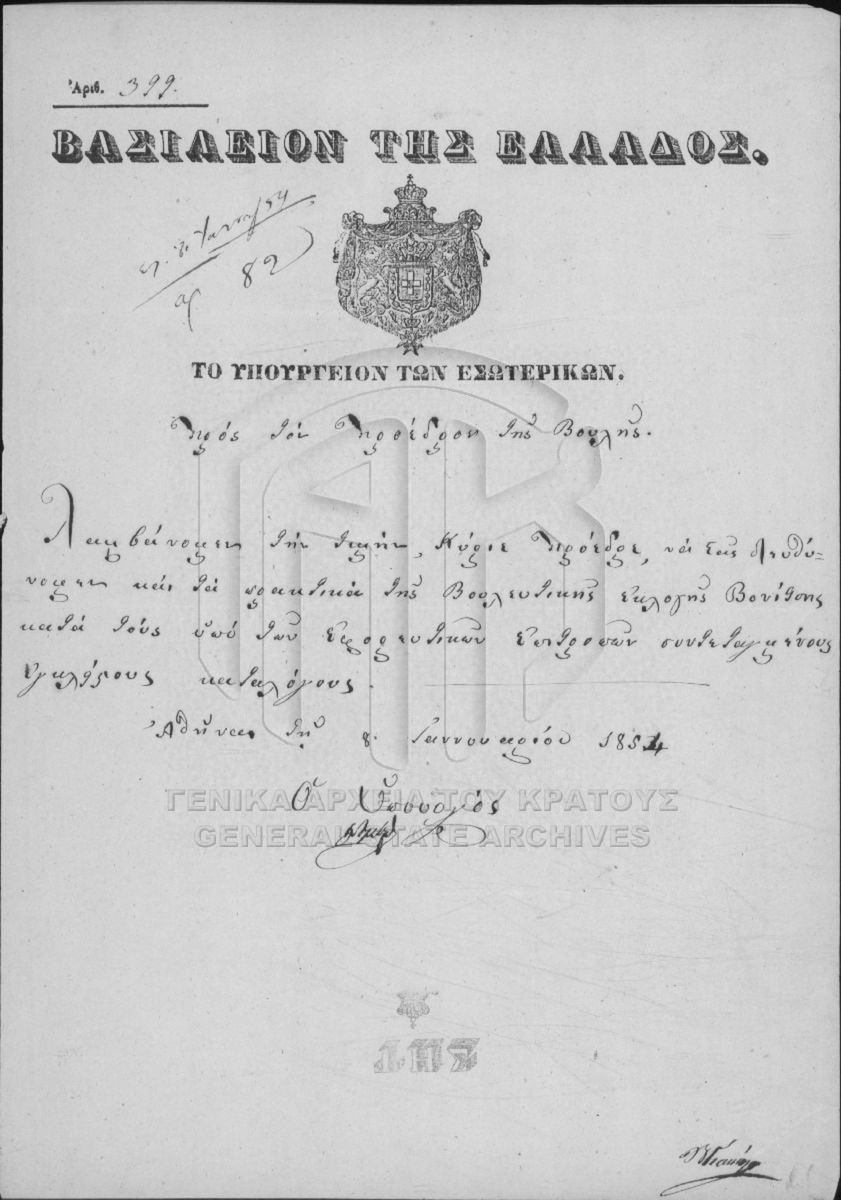 Ἀριθ. 399.
ΒΑΣΙΛΕΙΟΝ ΤΗΣ ΕΛΛΑΔΟΣ.
82
ΤΟ ΥΠΟΥΡΓΕΙΟΝ ΤΩΝ ΕΣΩΤΕΡΙΚΩΝ.
Πρός τόν Πρόεδρον τῆς Βουλῆς.
Λαμβάνομεν τήν τιμήν, Κύριε Πρόεδρε, νά σᾶς διευθύ-
νομεν καί τά πρακτικά τῆς Βουλευτικῆς ἐκλογῆς Βονίτσης
κατά τούς ὑπό τῶν Ἐφορευτικῶν ἐπιτροπῶν συντεταγμένους
ἐγκλήτους καταλόγους.
Ἀθῆναι τῇ 8 Ἰαννουαρίου 1854
Ὁ Ὑπουργός
ΓΕΝΙΚΑ ΑΡΧΕΙΑ ΤΟΥ ΚΡΑΤΟΥΣ
GENERAL STATE ARCHIVES